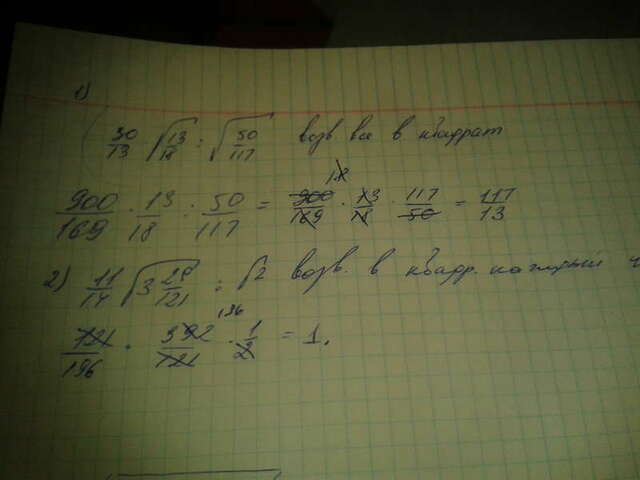 1)
30/13 √13/18 : √50/117 возв. все в квадрат
900/169 · 13/18 : 50/117 = 900/169 · 13/18 · 117/50 = 117/13
2) 11/14 √3 29/121 : √2 возв. в квадр. каждый
121/196 · 392/121 · 1/2 = 1.